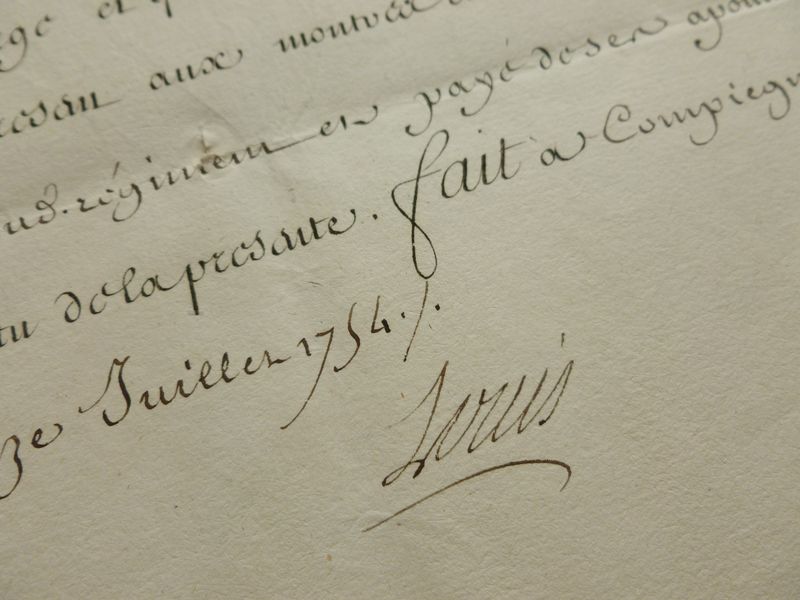 present aux montres
ud. régiment et payé de ses apoint
tu de la presente. fait a Compiegn
ze Juillet 1754./.
Louis